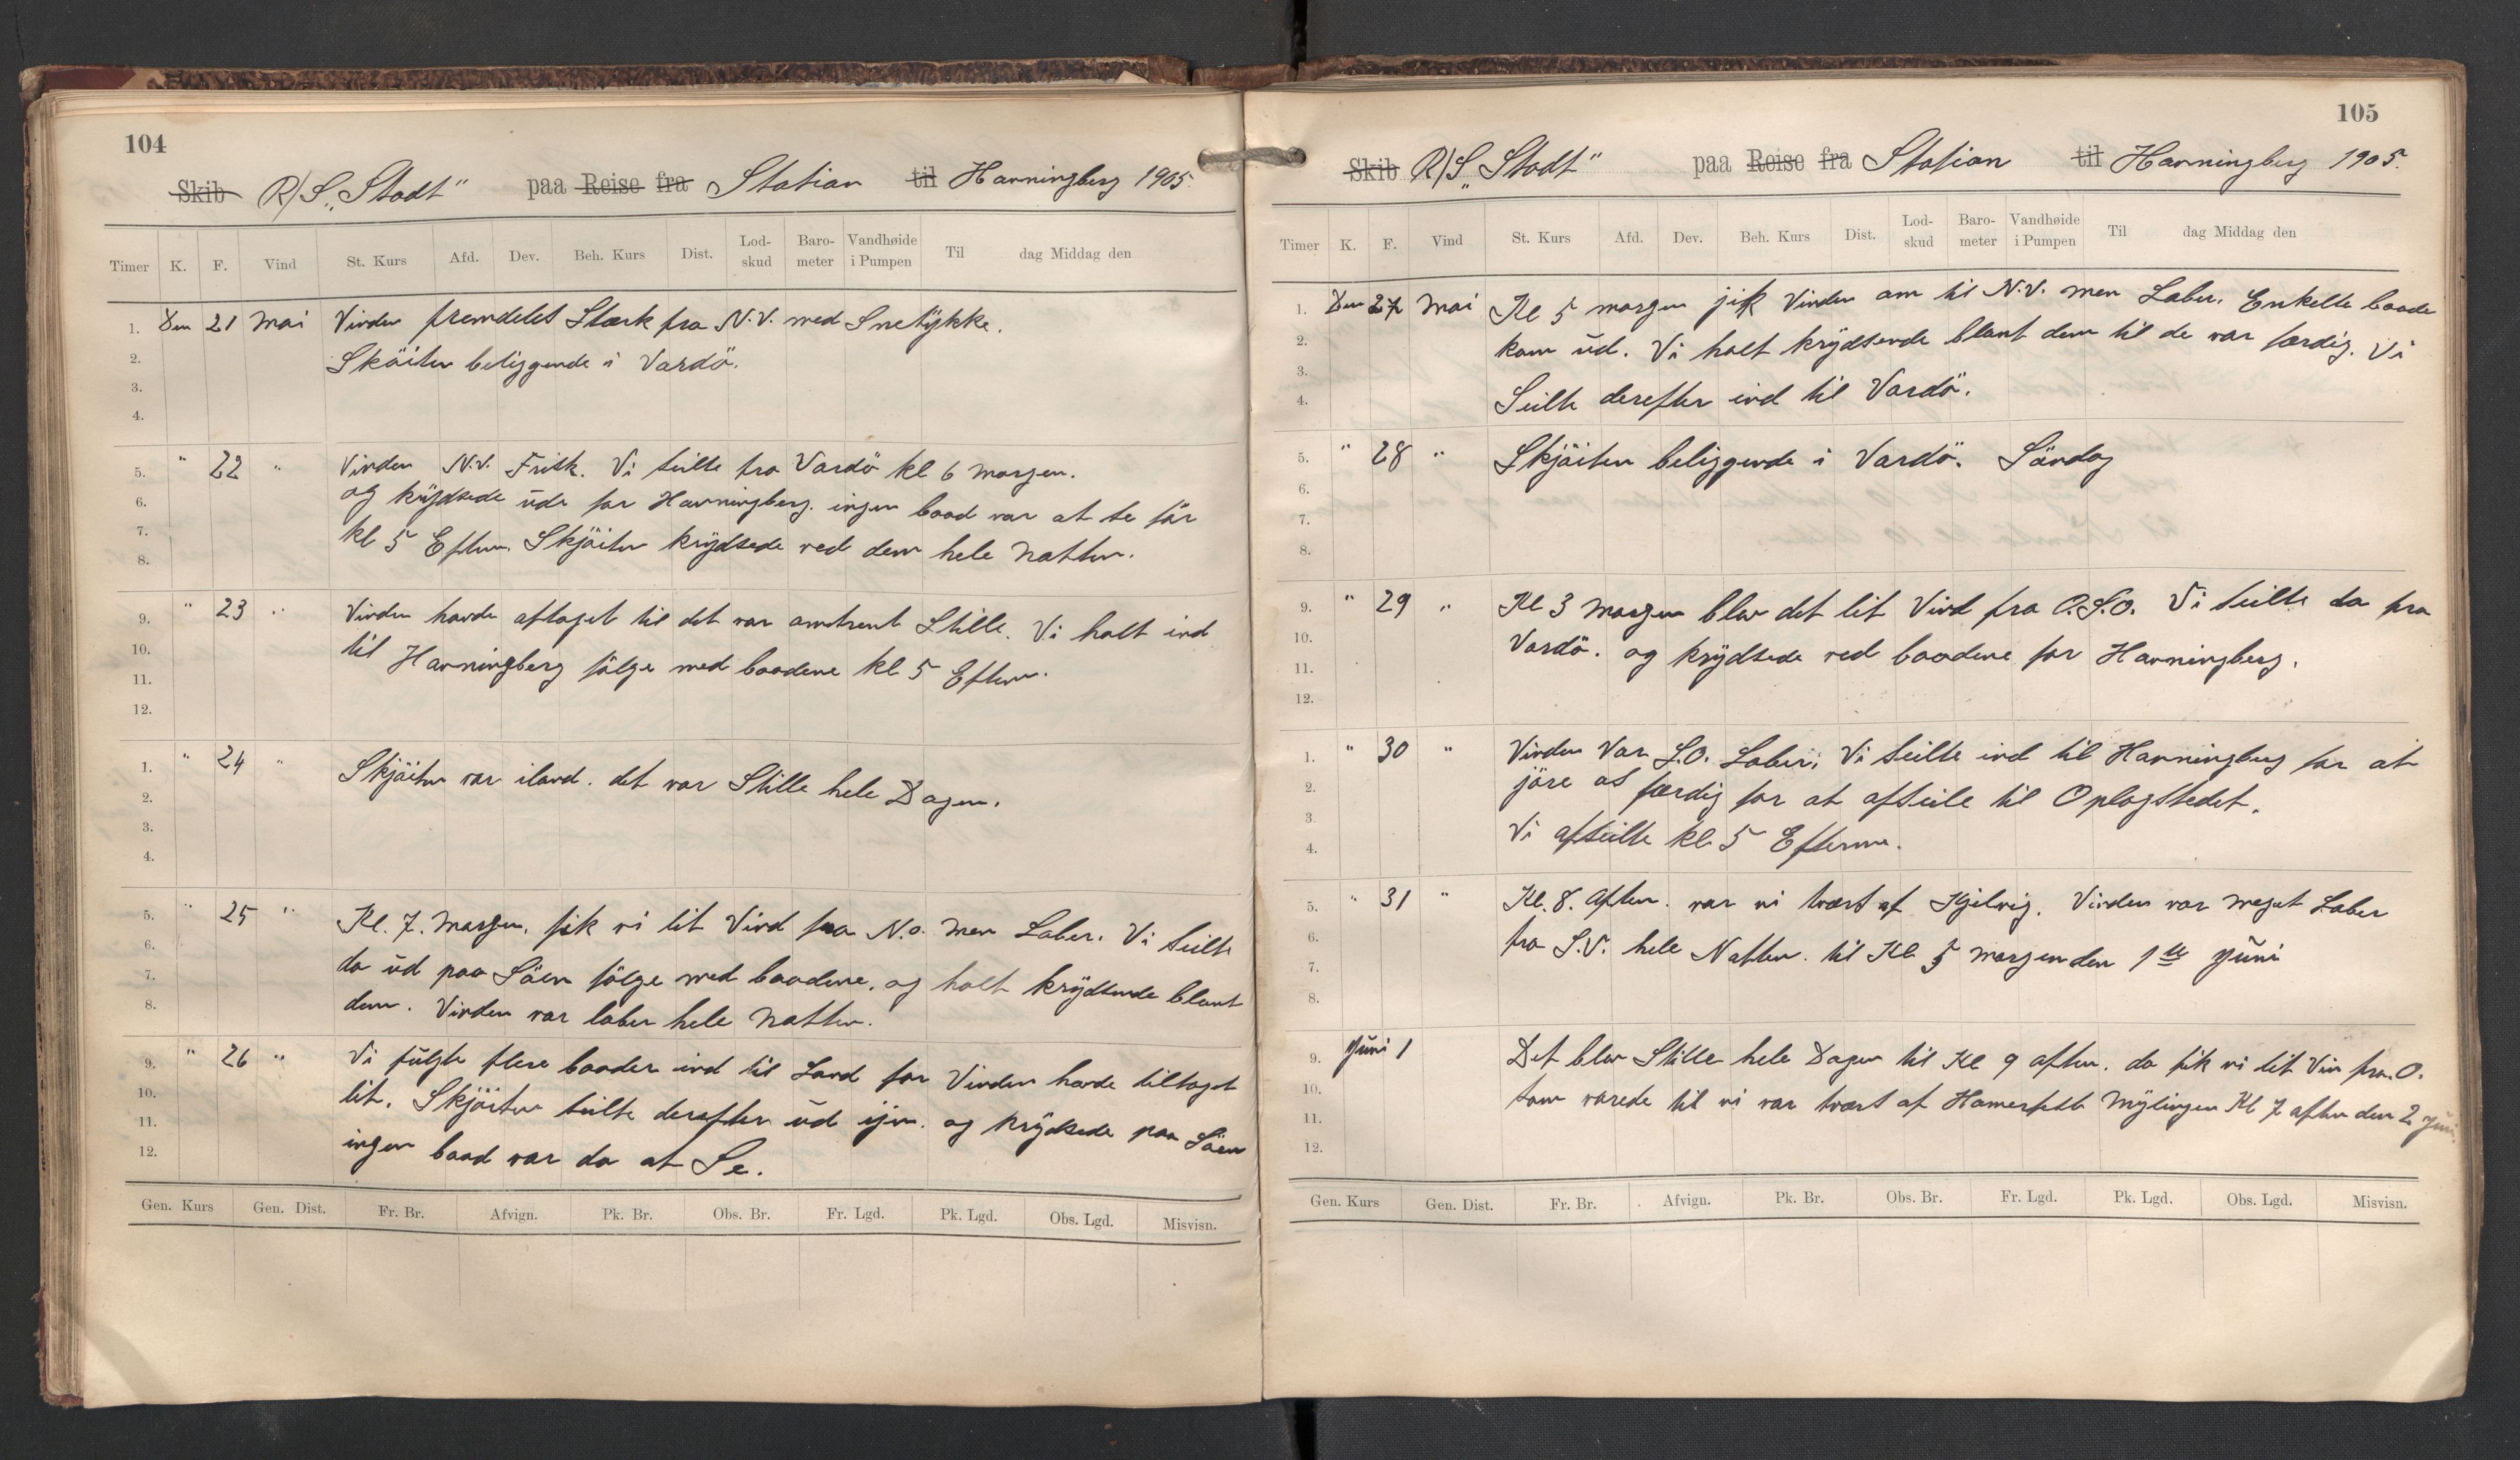 104
Skib R/S „Stadt" paa Reise fra Station til Havningberg 1905.
Timer K. F. Vind St. Kurs Afd. Dev. Beh. Kurs Dist. Lod-skud Baro-meter Vandhøide i Pumpen Til dag Middag den
1. Den 21 Mai Vinden fremdeles Stærk fra N.V. med Snetykke.
2. Sköiten beliggende i Vardö.
3.
4.
5. " 22 " Vinden N.V. Frisk. Vi seilte fra Vardö kl 6 morgen.
6. og krydsede ude for Havningberg. ingen baad var at se för
7. kl 5 Efterm. Skjöiten krydsede ved dem hele Natten.
8.
9. " 23 " Vinden havde aftaget til det var omtrent Stille. Vi holt ind
10. til Havningberg fölge med baadene kl 5 Efterm.
11.
12.
1. " 24 " Skjöiten var iland. det var Stille hele Dagen.
2.
3.
4.
5. " 25 " Kl. 7. morgen. fik vi lit Vind fra N.O. men Laber. Vi seilte
6. da ud paa Söen fölge med baadene. og holt krydsende blant
7. dem. Vinden var laber hele Natten.
8.
9. " 26 " Vi fulgte flere baader ind til Land for Vinden havde tiltaget
10. lit. Skjöiten seilte derefter ud ijen. og krydsede paa Söen
11. ingen baad var da at Se.
12.
Gen. Kurs Gen. Dist. Fr. Br. Afvign. Pk. Br. Obs. Br. Fr. Lgd. Pk. Lgd. Obs. Lgd. Misvisn.
105
Skib R/S „Stadt" paa Reise fra Station til Havningberg 1905.
Timer K. F. Vind St. Kurs Afd. Dev. Beh. Kurs Dist. Lod-skud Baro-meter Vandhøide i Pumpen Til dag Middag den
1. Den 27 Mai Kl 5 morgen jik Vinden om til N.V. men Laber. Enkelte baade
2. kom ud. Vi holt krydsende blant dem til de var færdig. Vi
3. Seilte derefter ind til Vardö.
4.
5. " 28 " Skjöiten beliggende i Vardö. Söndag
6.
7.
8.
9. " 29 " Kl 3 morgen blev det lit Vind fra O.S.O. Vi seilte da fra
10. Vardö. og krydsede ved baadene for Havningberg.
11.
12.
1. " 30 " Vinden Var S.O. Laber, Vi seilte ind til Havningberg for at
2. jöre os færdig for at afseile til Oplagstedet.
3. Vi afseilte kl 5 Efterm.
4.
5. " 31 " Kl. 8. aften. var vi tvært af Kjelvig. Vinden var meget Laber
6. fra S.V. hele Natten. til Kl 5 morgen den 1ste Juni
7.
8.
9. Juni 1 Det blev Stille hele Dagen til Kl 9 aften. da fik vi lit Vin fra O.
10. som varede til vi var tvært af Hamerfæst Mylingen Kl 7 aften den 2 Juni.
11.
12.
Gen. Kurs Gen. Dist. Fr. Br. Afvign. Pk. Br. Obs. Br. Fr. Lgd. Pk. Lgd. Obs. Lgd. Misvisn.